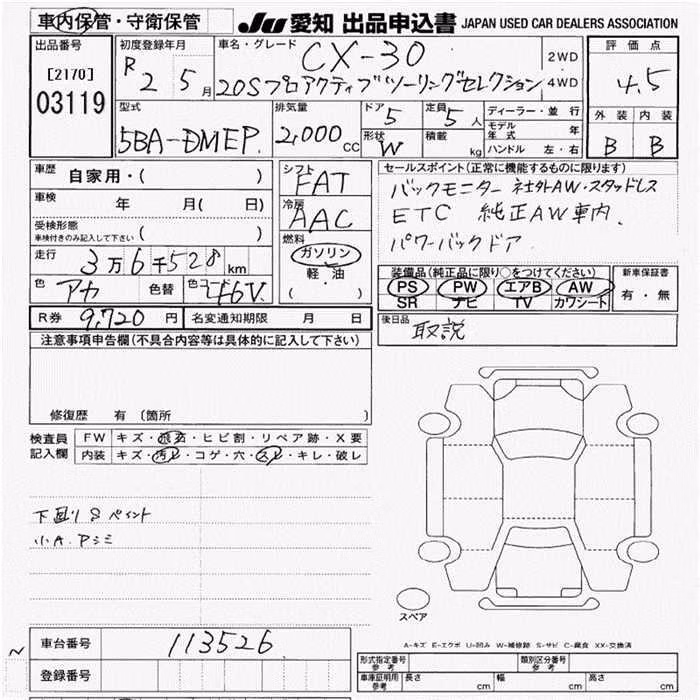 車内保管・守衛保管
JU 愛知 出品申込書 JAPAN USED CAR DEALERS ASSOCIATION
出品番号 初度登録年月 車名・グレード CX-30 2WD 評価点
[2170] R 2 5月 20Sプロアクティブツーリングセレクション 4WD 4.5
03119
型式 排気量 ドア 5 定員 5人 ディーラー・並行 外装 内装
5BA-DMEP. 2,000cc 形状 W 積載 kg モデル年式 年 B B
ハンドル 左・右
車歴 自家用・( ) シフト FAT セールスポイント(正常に機能するものに限ります)
車検 年 月( 日) 冷房 AAC バックモニター 社外AW・スタッドレス
受検形態 ( ) ETC 純正AW車内、
車検付きのみ記入して下さい
燃料 ガソリン パワーバックドア
走行 3万6千528km 軽・油 装備品(純正品に限り○をつけてください) 新車保証書
色 アカ 色替 色コード 46V. ( ) PS PW エアB AW 有・無
SR ナビ TV カワシート
R券 9,720円 名変通知期限 月 日 後日品 取説
注意事項申告欄(不具合内容等は具体的に記入して下さい)
修復歴 有(箇所 )
検査員 FW キズ・飛石・ヒビ割・リペア跡・X要
記入欄 内装 キズ・汚レ・コゲ・穴・スレ・キレ・破レ
下回りSペイント
小A.アシミ
スペア
A-キズ E-エクボ U-凹み W-補修跡 S-サビ C-腐食 XX-交換済
~ 車台番号 113526 形式指定番号 参考 類別区分番号 参考
登録番号 車庫証明用 参考 長さ cm 幅 cm 高さ cm